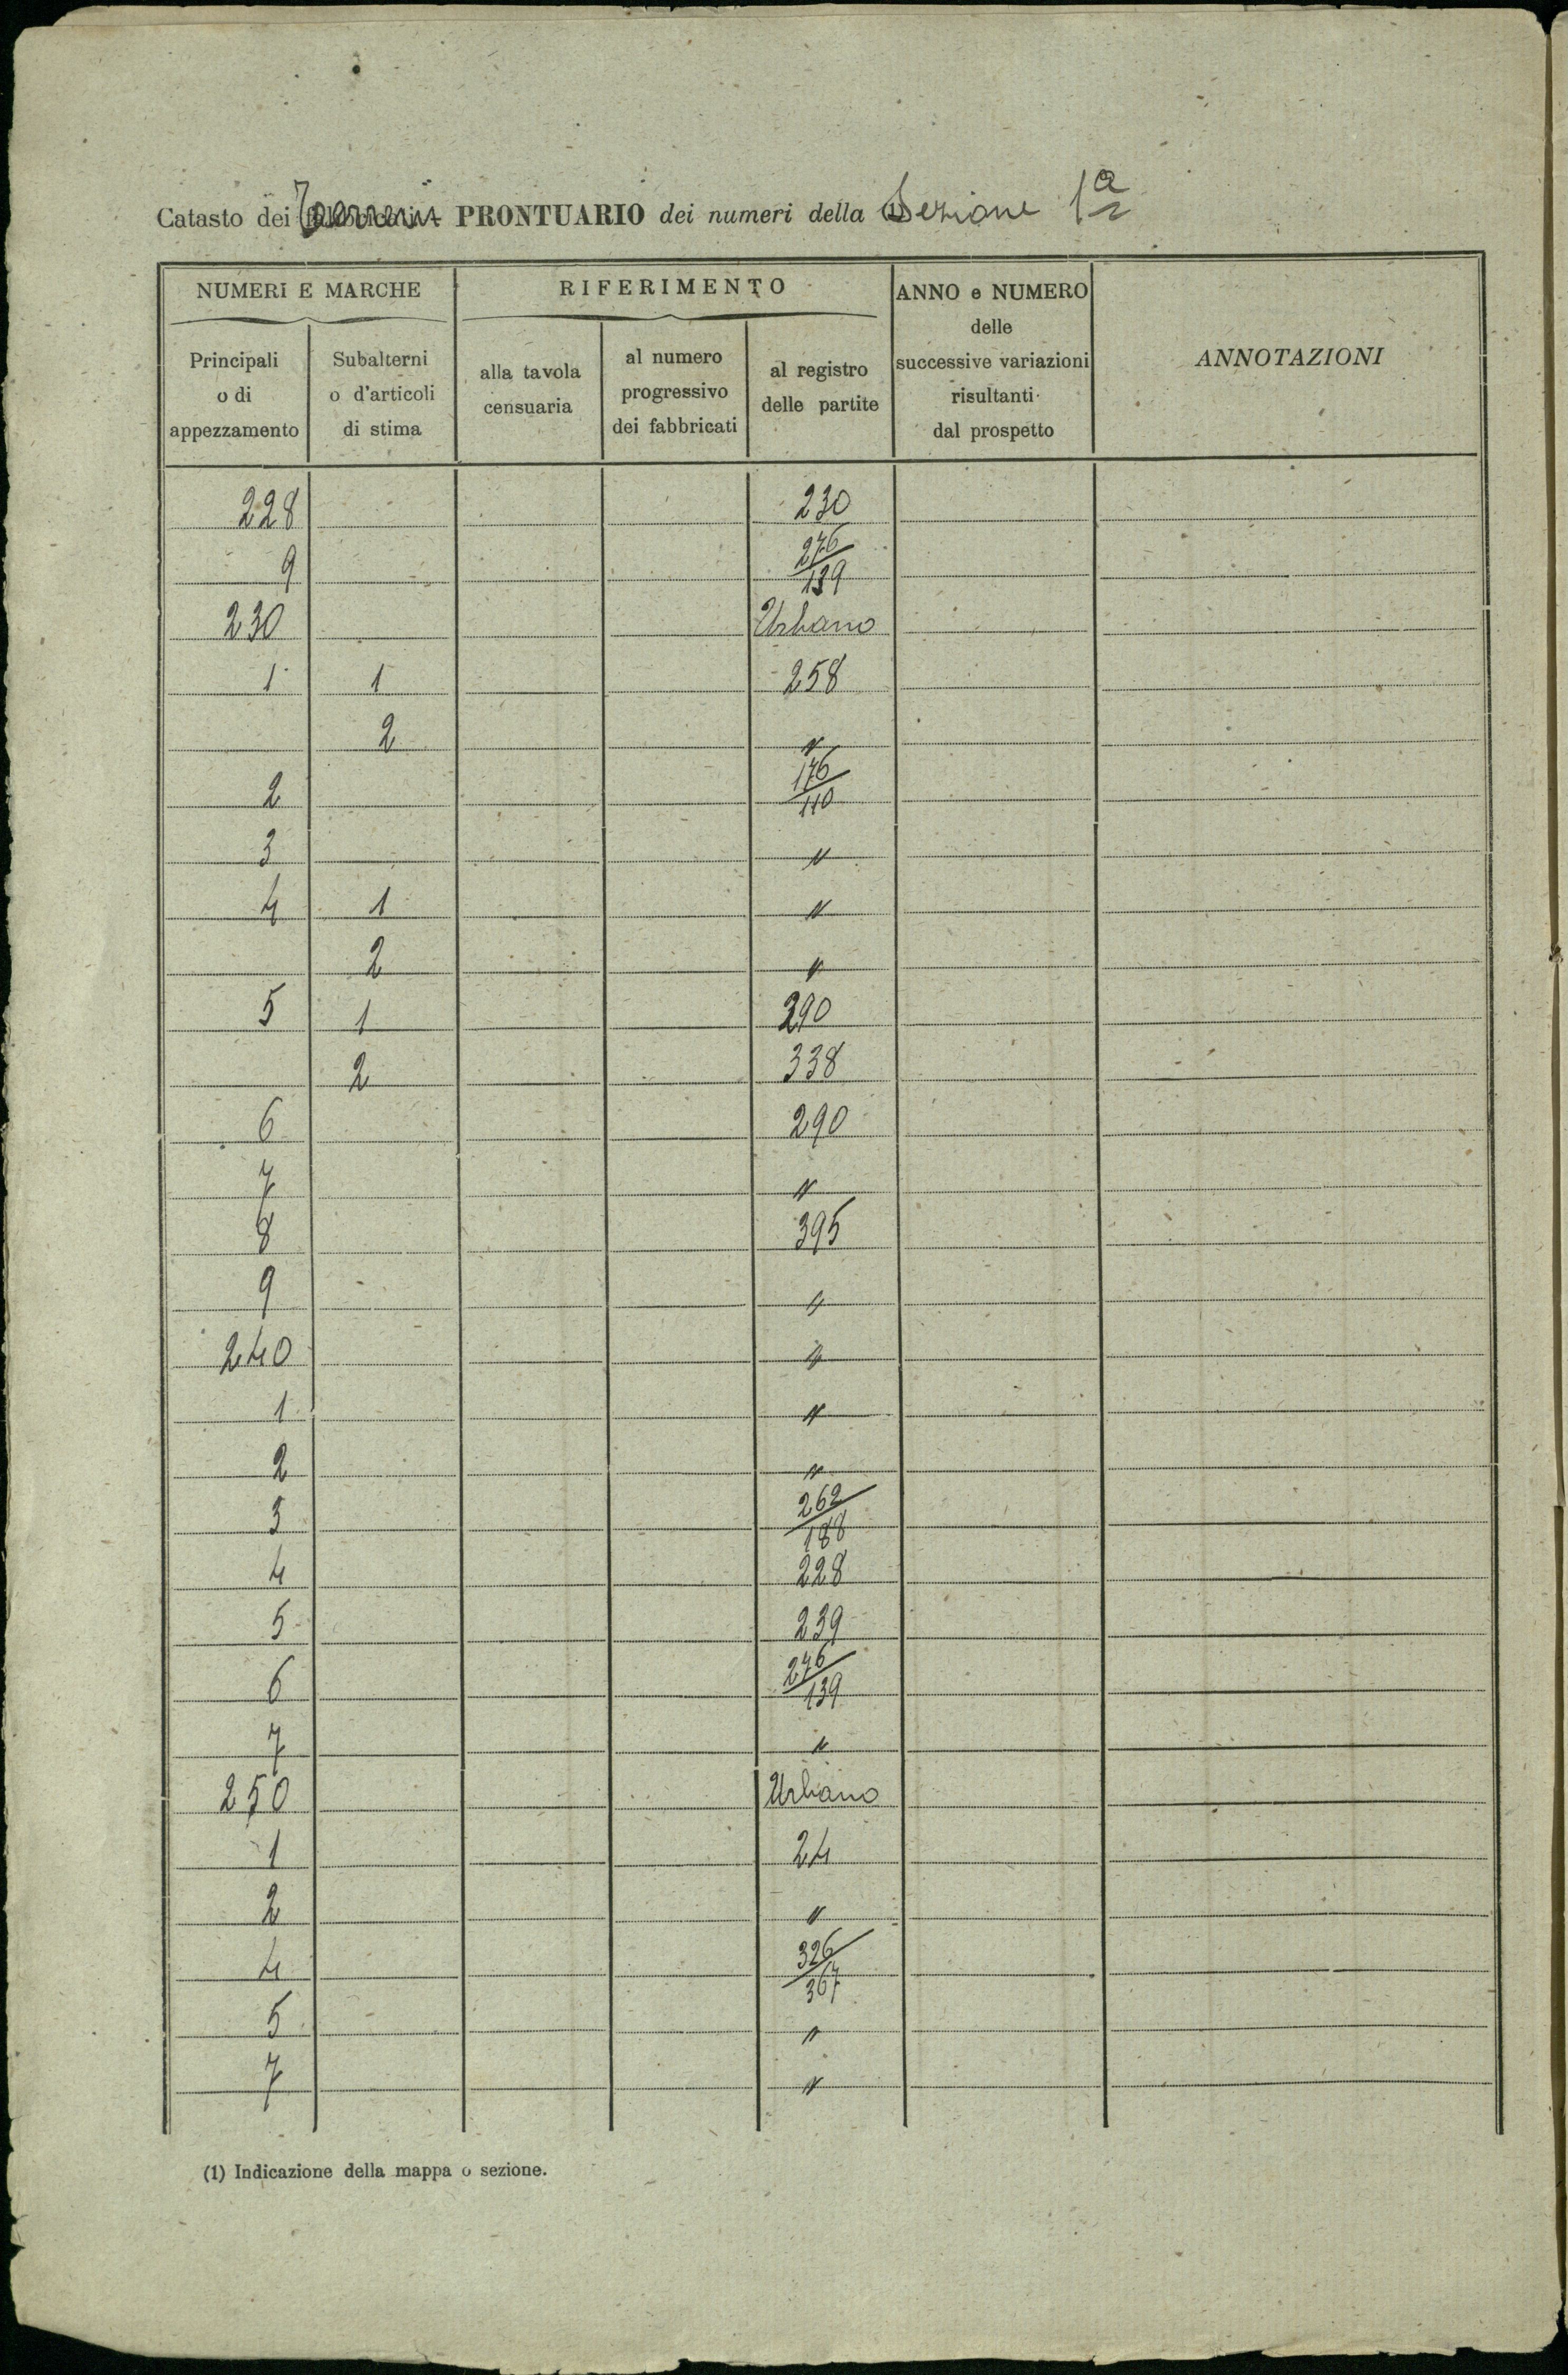 Catasto dei Terreni PRONTUARIO dei numeri della (1) Sezione 1a
NUMERI E MARCHE
RIFERIMENTO
ANNO e NUMERO
delle
successive variazioni
risultanti
dal prospetto
ANNOTAZIONI
Principali
o di
appezzamento
Subalterni
o d'articoli
di stima
alla tavola
censuaria
al numero
progressivo
dei fabbricati
al registro
delle partite
228 230
9 276/139
230 Urbano
1 1 258
2 "
2 176/110
3 "
4 1 "
2 "
5 1 290
2 338
6 290
7 "
8 395
9 "
240 "
1 "
2 "
3 262/188
4 228
5 239
6 276/139
7 "
250 Urbano
1 24
2 "
4 326/367
5 "
7 "
(1) Indicazione della mappa o sezione.